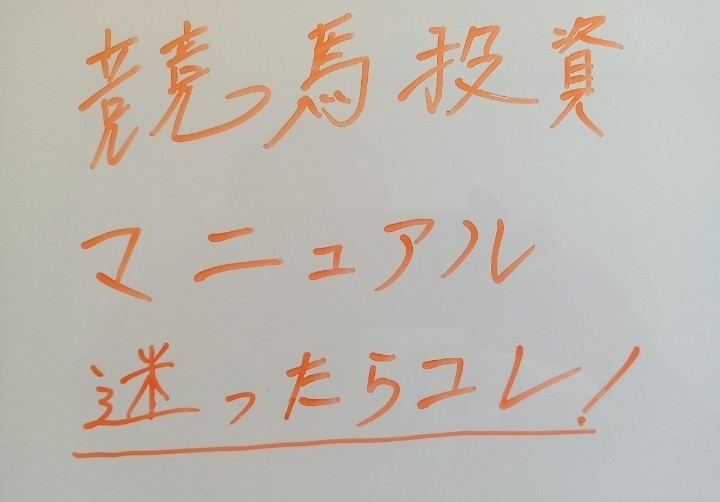 競馬投資
マニュアル
迷ったらコレ!